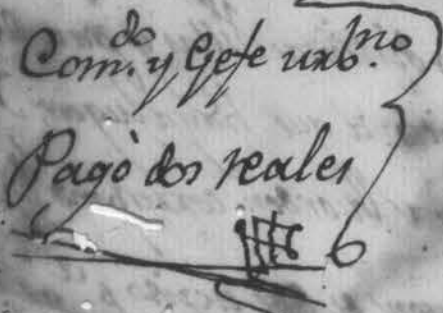 Com.do y Gefe urb.no
Pagò dos reales